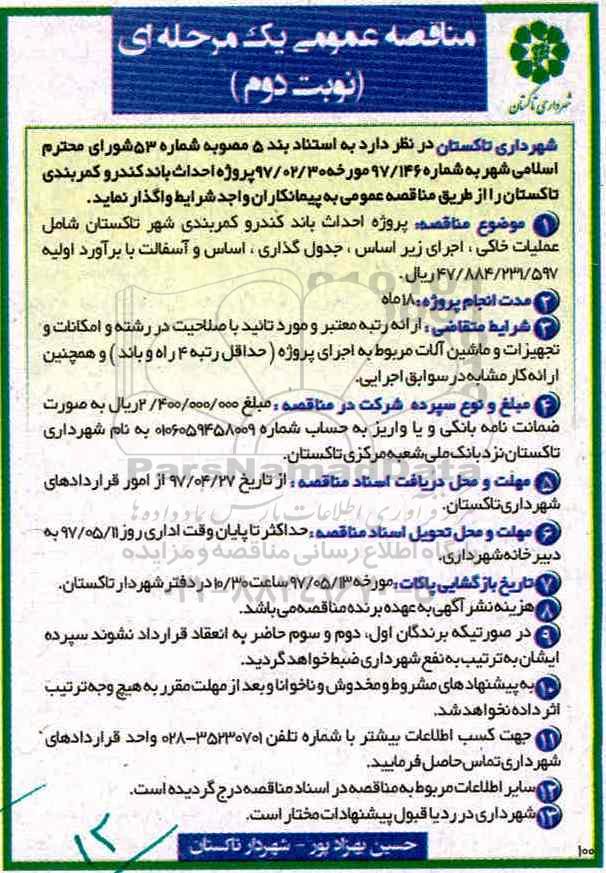 مناقصه عمومی یک مرحله ای
(نوبت دوم)
شهرداری تاکستان
شهرداری تاکستان در نظر دارد به استناد بند ۵ مصوبه شماره ۵۳ شورای محترم
اسلامی شهر به شماره ۹۷/۱۴۶ مورخه ۹۷/۰۲/۳۰ پروژه احداث باند کندرو کمربندی
تاکستان را از طریق مناقصه عمومی به پیمانکاران واجد شرایط واگذار نماید.
۱ موضوع مناقصه: پروژه احداث باند کندرو کمربندی شهر تاکستان شامل
عملیات خاکی ، اجرای زیر اساس ، جدول گذاری ، اساس و آسفالت با برآورد اولیه
۴۷/۸۸۴/۲۳۱/۵۹۷ ریال.
۲ مدت انجام پروژه: ۱۸ ماه
۳ شرایط متقاضی: ارائه رتبه معتبر و مورد تائید با صلاحیت در رشته و امکانات و
تجهیزات و ماشین آلات مربوط به اجرای پروژه (حداقل رتبه ۴ راه و باند) و همچنین
ارائه کار مشابه در سوابق اجرایی.
۴ مبلغ و نوع سپرده شرکت در مناقصه: مبلغ ۲/۴۰۰/۰۰۰/۰۰۰ ریال به صورت
ضمانت نامه بانکی و یا واریز به حساب شماره ۰۱۰۶۰۵۹۴۵۸۰۰۹ به نام شهرداری
تاکستان نزد بانک ملی شعبه مرکزی تاکستان.
۵ مهلت و محل دریافت اسناد مناقصه: از تاریخ ۹۷/۰۴/۲۷ از امور قراردادهای
شهرداری تاکستان.
۶ مهلت و محل تحویل اسناد مناقصه: حداکثر تا پایان وقت اداری روز ۹۷/۰۵/۱۱ به
دبیرخانه شهرداری.
۷ تاریخ بازگشایی پاکات: مورخه ۹۷/۰۵/۱۳ ساعت ۱۰/۳۰ در دفتر شهردار تاکستان.
۸ هزینه نشر آگهی به عهده برنده مناقصه می باشد.
۹ در صورتیکه برندگان اول، دوم و سوم حاضر به انعقاد قرارداد نشوند سپرده
ایشان به ترتیب به نفع شهرداری ضبط خواهد گردید.
۱۰ به پیشنهادهای مشروط و مخدوش و ناخوانا و بعد از مهلت مقرر به هیچ وجه ترتیب
اثر داده نخواهد شد.
۱۱ جهت کسب اطلاعات بیشتر با شماره تلفن ۳۵۲۳۰۷۰۱-۰۲۸ واحد قراردادهای
شهرداری تماس حاصل فرمایید.
۱۲ سایر اطلاعات مربوط به مناقصه در اسناد مناقصه درج گردیده است.
۱۳ شهرداری در رد یا قبول پیشنهادات مختار است.
حسین بهزاد پور - شهردار تاکستان
۱۰۰
۱۲
ParsNamadData